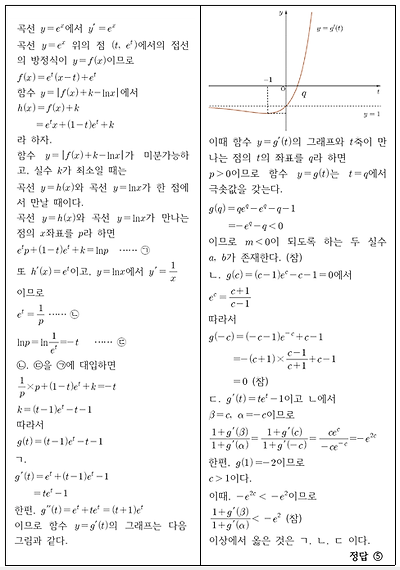 곡선 y=e^x에서 y′=e^x
곡선 y=e^x 위의 점 (t, e^t)에서의 접선
의 방정식이 y=f(x)이므로
f(x)=e^t(x-t)+e^t
함수 y=|f(x)+k-lnx|에서
h(x)=f(x)+k
=e^tx+(1-t)e^t+k
라 하자.
함수 y=|f(x)+k-lnx|가 미분가능하
고, 실수 k가 최소일 때는
곡선 y=h(x)와 곡선 y=lnx가 한 점에
서 만날 때이다.
곡선 y=h(x)와 곡선 y=lnx가 만나는
점의 x좌표를 p라 하면
e^tp+(1-t)e^t+k=lnp ⋯⋯ ㉠
또 h′(x)=e^t이고, y=lnx에서 y′=1/x
이므로
e^t=1/p ⋯⋯ ㉡
lnp=ln1/e^t=-t ⋯⋯ ㉢
㉡, ㉢을 ㉠에 대입하면
1/p×p+(1-t)e^t+k=-t
k=(t-1)e^t-t-1
따라서
g(t)=(t-1)e^t-t-1
ㄱ.
g′(t)=e^t+(t-1)e^t-1
=te^t-1
한편, g″(t)=e^t+te^t=(t+1)e^t
이므로 함수 y=g′(t)의 그래프는 다음
그림과 같다.
y
y=g′(t)
-1
O
q
t
y=1
이때 함수 y=g′(t)의 그래프와 t축이 만
나는 점의 t의 좌표를 q라 하면
p>0이므로 함수 y=g(t)는 t=q에서
극솟값을 갖는다.
g(q)=qe^q-e^q-q-1
=-e^q-q<0
이므로 m<0이 되도록 하는 두 실수
a, b가 존재한다. (참)
ㄴ. g(c)=(c-1)e^c-c-1=0에서
e^c=c+1/c-1
따라서
g(-c)=(-c-1)e^-c+c-1
=-(c+1)×c-1/c+1+c-1
=0 (참)
ㄷ. g′(t)=te^t-1이고 ㄴ에서
β=c, α=-c이므로
1+g′(β)/1+g′(α)=1+g′(c)/1+g′(-c)=ce^c/-ce^-c=-e^2c
한편, g(1)=-2이므로
c>1이다.
이때, -e^2c<-e^2이므로
1+g′(β)/1+g′(α)<-e^2 (참)
이상에서 옳은 것은 ㄱ, ㄴ, ㄷ 이다.
정답 ⑤